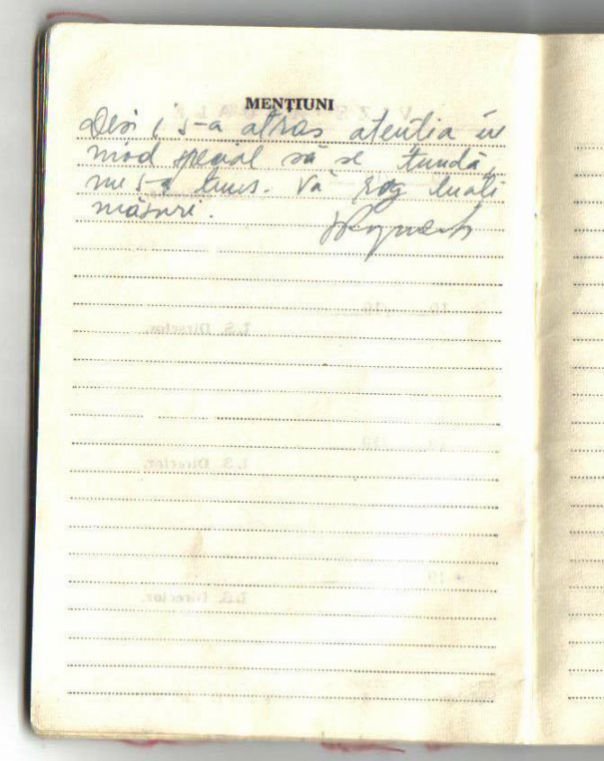 MENȚIUNI
Deși i s-a atras atenția în
mod special să se tundă,
nu s-a tuns. Vă rog luați
măsuri.
L.S. Director,
L.S. Director,
L.S. Director,